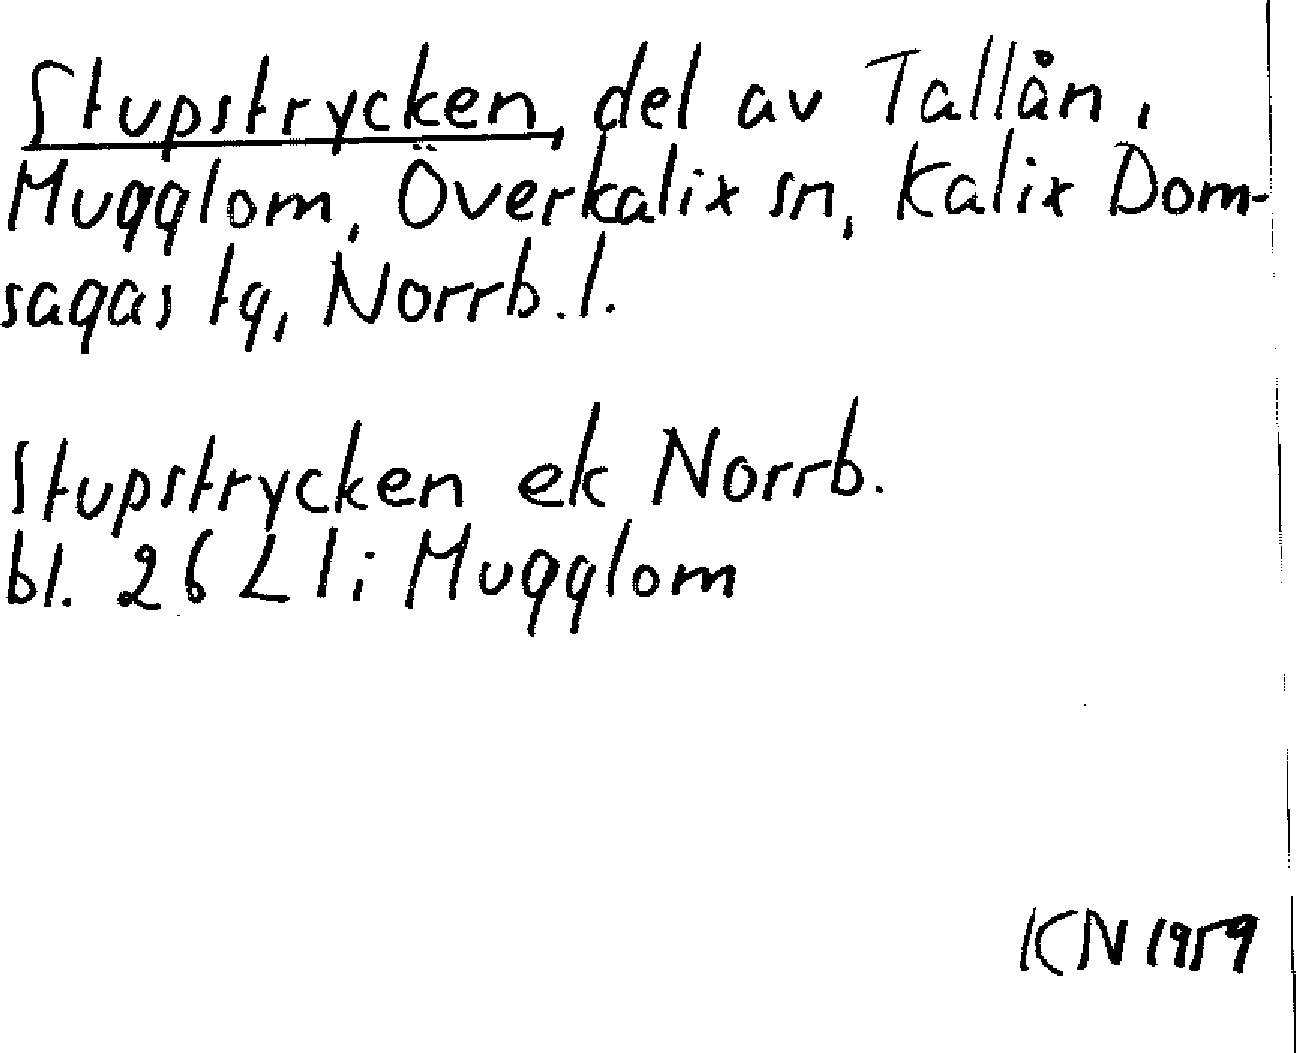 Stupstrycken, del av Tallån,
Mugglom, Överkalix sn, Kalix Dom-
sagas tg, Norrb. l.
Stupstrycken ek Norrb.
bl. 26 L 1 i Mugglom
KN 1959